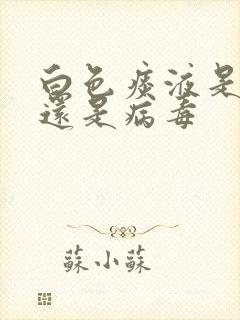 白色痰液是
還是病毒
蘇小蘇